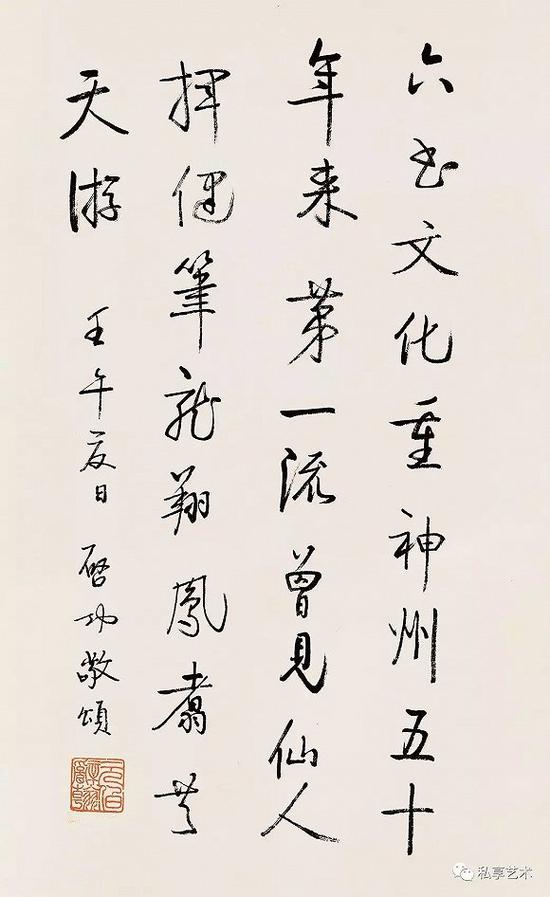 六书文化重神州五十
年来第一流曾見仙人
揮健筆龍翔鳳翥
天游
壬午夏日 啓功敬頌
私享艺术